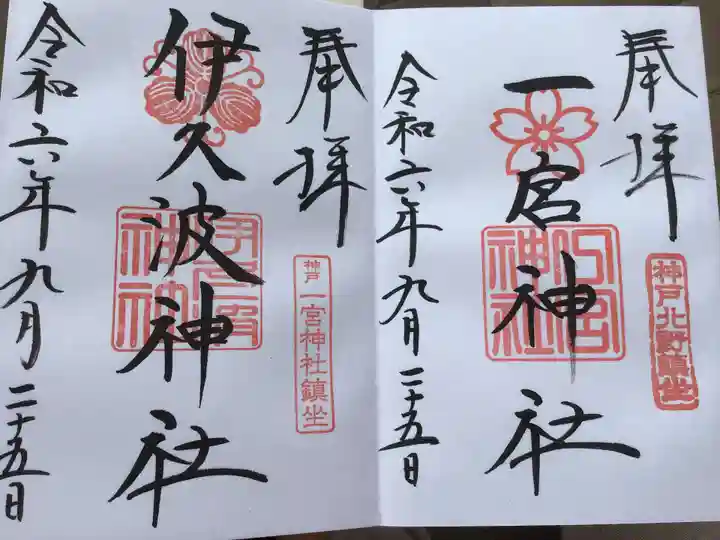 奉拝
神戸北野鎮坐
一宮神社
一宮神社
令和六年九月二十五日
奉拝
神戸一宮神社鎮坐
伊久波神社
伊久波神社
令和六年九月二十五日